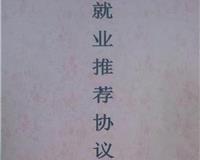 就业推荐协议